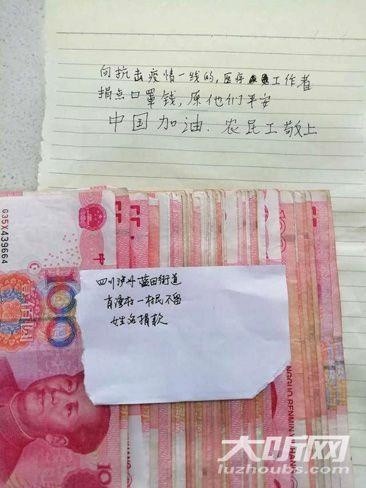 向抗击疫情一线的,医疗工作者
捐点口罩钱,原他们平安
中国加油.农民工敬上
G35X439664
100
四川泸州蓝田街道
一村民不留
姓名捐款
大听网
luzhoubs.com